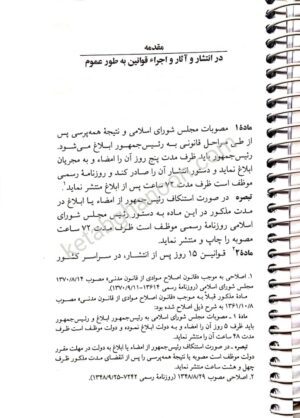 مقدمه
در انتشار و آثار و اجراء قوانین به طور عموم
مادهٔ ۱ مصوبات مجلس شورای اسلامی و نتیجهٔ همه‌پرسی پس
از طی مراحل قانونی به رئیس‌جمهور ابلاغ می‌شود.
رئیس‌جمهور باید ظرف مدت پنج روز آن را امضاء و به مجریان
ابلاغ نماید و دستور انتشار آن را صادر کند و روزنامهٔ رسمی
موظف است ظرف مدت ۷۲ ساعت پس از ابلاغ منتشر نماید.۱
تبصره در صورت استنکاف رئیس‌جمهور از امضاء یا ابلاغ در
مدت مذکور در این ماده به دستور رئیس مجلس شورای
اسلامی روزنامهٔ رسمی موظف است ظرف مدت ۷۲ ساعت
مصوبه را چاپ و منتشر نماید.
مادهٔ ۲ قوانین ۱۵ روز پس از انتشار، در سراسر کشور
۱. اصلاحی به موجب «قانون اصلاح موادی از قانون مدنی» مصوب ۱۳۷۰/۸/۱۴
مجلس شورای اسلامی (روزنامهٔ رسمی ۱۳۶۱۴-۱۳۷۰/۹/۱۱).
مادهٔ مذکور قبلاً به موجب «قانون اصلاح موادی از قانون مدنی» مصوب
۱۳۶۱/۱۰/۸ به شرح ذیل اصلاح شده بود:
مادهٔ ۱ ـ مصوبات مجلس شورای اسلامی به رئیس‌جمهور ابلاغ و رئیس‌جمهور
باید ظرف ۵ روز آن را امضاء و به دولت ابلاغ نموده و دولت موظف است ظرف
مدت ۴۸ ساعت آن را منتشر نماید.
تبصره ـ در صورت استنکاف رئیس‌جمهور از امضاء یا ابلاغ به دولت در مهلت مقرر
دولت موظف است مصوبه یا نتیجهٔ همه‌پرسی را پس از انقضای مدت مذکور ظرف
چهل و هشت ساعت منتشر نماید.
۲. اصلاحی مصوب ۱۳۴۸/۸/۲۹ (روزنامهٔ رسمی ۷۲۴۴-۱۳۴۸/۹/۲۵)